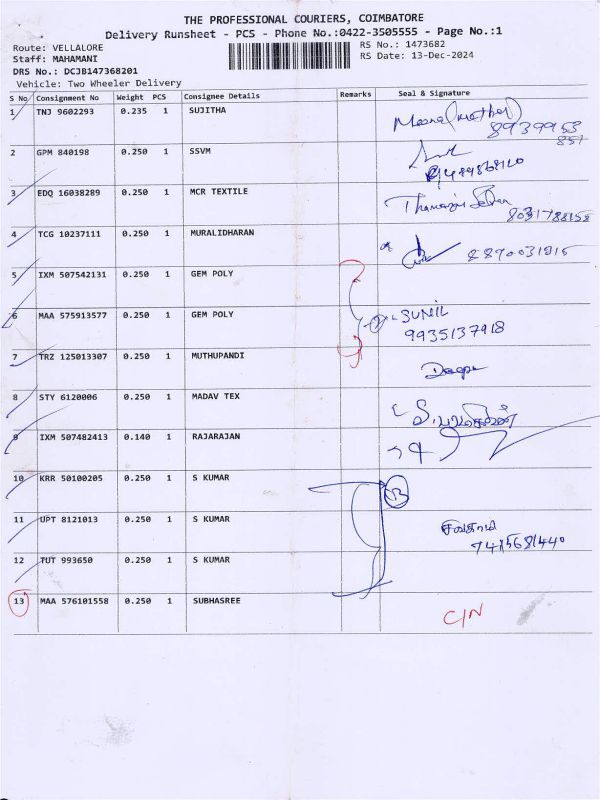 THE PROFESSIONAL COURIERS, COIMBATORE
Delivery Runsheet - PCS - Phone No.:0422-3505555 - Page No.:1
Route: VELLALORE RS No.: 1473682
Staff: MAHAMANI RS Date: 13-Dec-2024
DRS No.: DCJB147368201
Vehicle: Two Wheeler Delivery
S No Consignment No Weight PCS Consignee Details Remarks Seal & Signature
1 TNJ 9602293 0.235 1 SUJITHA 8939953
851
2 GPM 840198 0.250 1 SSVM
3 EDQ 16038289 0.250 1 MCR TEXTILE
4 TCG 10237111 0.250 1 MURALIDHARAN 8890031815
5 IXM 507542131 0.250 1 GEM POLY
6 MAA 575913577 0.250 1 GEM POLY SUNIL
9935137918
7 TRZ 125013307 0.250 1 MUTHUPANDI
8 STY 6120006 0.250 1 MADAV TEX
9 IXM 507482413 0.140 1 RAJARAJAN
10 KRR 50100205 0.250 1 S KUMAR
11 UPT 8121013 0.250 1 S KUMAR
12 TUT 993650 0.250 1 S KUMAR
13 MAA 576101558 0.250 1 SUBHASREE C/N